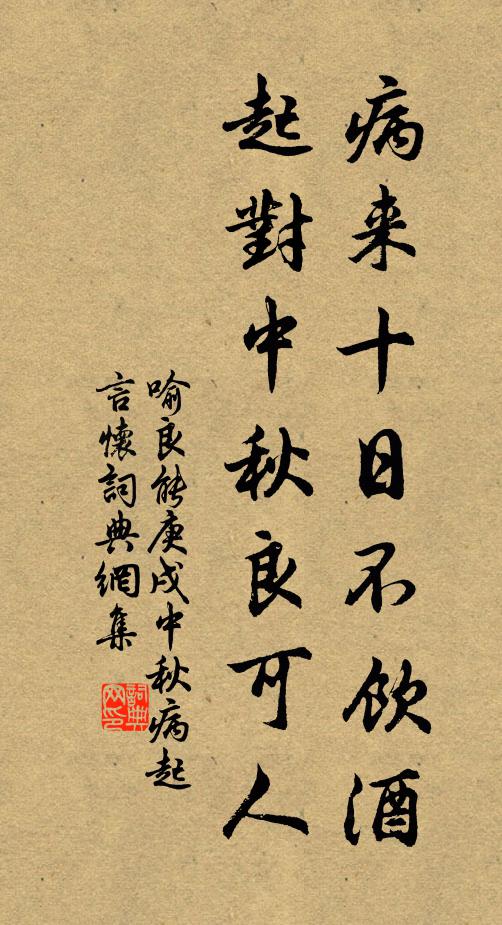 病来十日不饮酒
起對中秋良可人
喻良能庚戌中秋病起
言懷詞典網集
詞典
网印